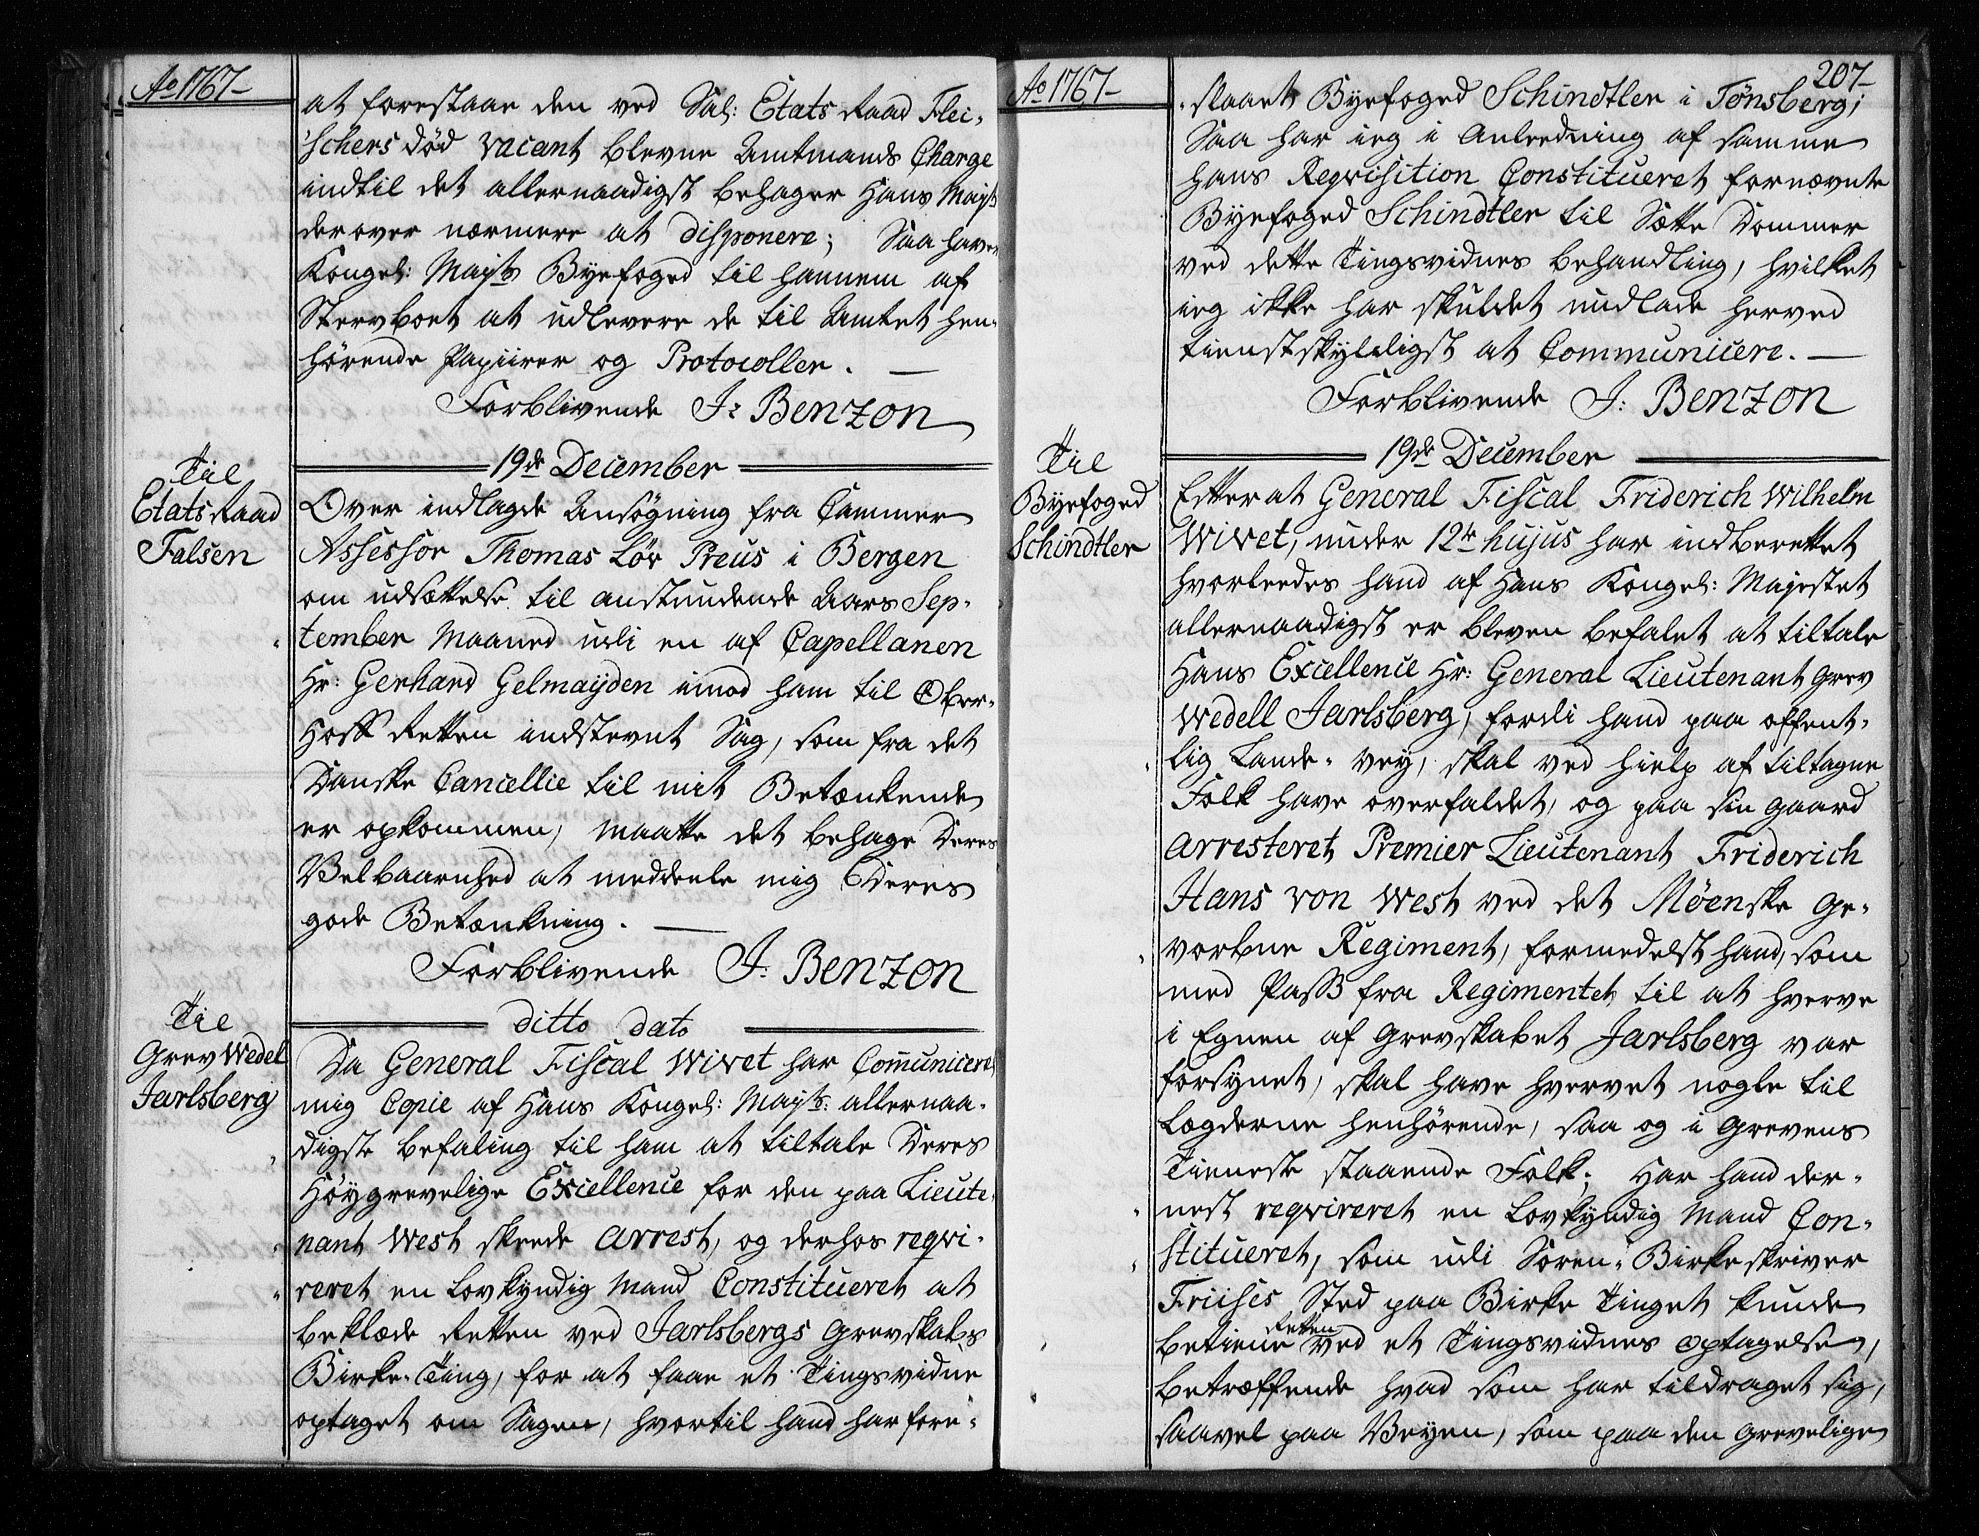 Ao 1767-
at forestaae den ved Sal: Etats Raad Flei-
schers Død vacant blevne Amtmands Charge
indtil det allernaadigst behager Hans Mayts
derover nærmere at disponere; Saa haver
Kongel: Mayts Byefoged til hannem af
Sterboet at udlevere de til Amtet hen-
hørende Papiirer og Protocoller. —
Forblivende J: Benzon
19de December
Til
Etats Raad
Falsen
Over indlagde Ansøgning fra Cammer
Assessor Thomas Lør Preus i Bergen
om udsættelse til anstundende Aars Sep-
tember Maaned udi en af Capellanen
Hr: Gerhard Gelmaÿden imod ham til Over-
Hoff Retten indstevnt Sag, som fra det
Danske Cancellie til mit Betænkende
er opkommen, maatte det behage Deres
Velbaarnhed at meddeele mig Deres
gode Betænkning. —
Forblivende J: Benzon
ditto dato
Til
Grev Wedel
Jarlsberg
Da General Fiscal Wivet har Comuniceret
mig Copie af Hans Kongel: Mayts: allernaa-
digste befaling til ham at tiltale Deres
Høygrevelige Excellence for den paa Lieute-
nant West skeede Arrest, og derhos reqvi-
reret en Lovkyndig Mand Constitueret at
beklæde Retten ved Jarlsbergs Grevskabs
Birke-Ting, for at faae et Tingsvidne
optaget om Sagen, hvortil hand har fore-
Ao 1767-
207-
slaaet Byefoged Schindtler i Tønsberg;
Saa har ieg i Anleedning af samme
hans Reqvisition Constitueret fornævnte
Byefoged Schindtler til Sætte Dommer
ved dette Tingsvidnes behandling, hvilket
ieg ikke har skuldet undlade herved
tienstskyldigst at Communicere. —
Forblivende J: Benzon
19de December
Til
Byefoged
Schindtler
Efterat General Fiscal Friderich Wilhelm
Wivet, under 12te hujus har indberettet
hvorleedes hand af Hans Kongel: Majestet
allernaadigst er bleven befalet at tiltale
Hans Excellence Hr: General Lieutenant Grev
Wedell Jarlsberg, fordi hand paa offent-
lig Lande-vey, skal ved hielp af tiltagne
Folk have overfaldet, og paa sin gaard
Arresteret Premier Lieutenant Friderich
Hans von West ved det Møenske Ge-
vorbne Regiment, formedelst hand, som
med Pass fra Regimentet til at hverve
i Egnen af Grevskabet Jarlsberg var
forsynet, skal have hvervet nogle til
Lægderne henhørende, saa og i Grevens
Tieneste staaende Folk; Har hand der-
nest reqvireret en Lovkyndig Mand Con-
stitueret, som udi Soren-Birkeskriver
Friises Sted paa Birke Tinget kunde
betiene Retten ved et Tingsvidnes optagelse,
betræffende hvad som har tildraget sig,
saavel paa Veyen, som paa den Grevelige